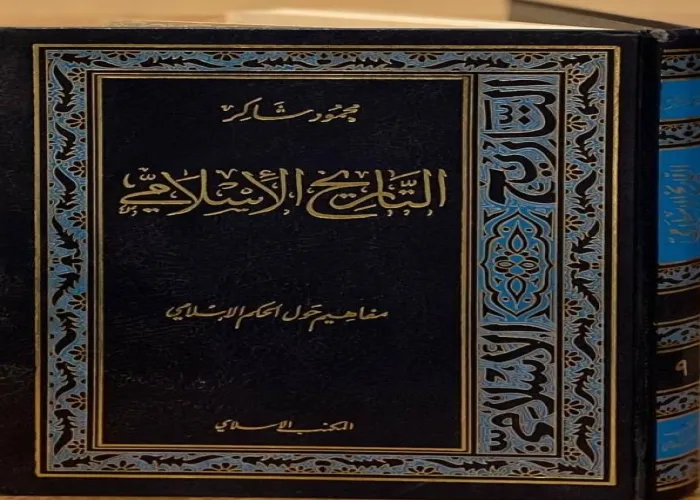 محمود شاكر
التاريخ الإسلامي
مفاهيم حول الحكم الإسلامي
المكتب الإسلامي
التاريخ الإسلامي
التاريخ الإسلامي
٩